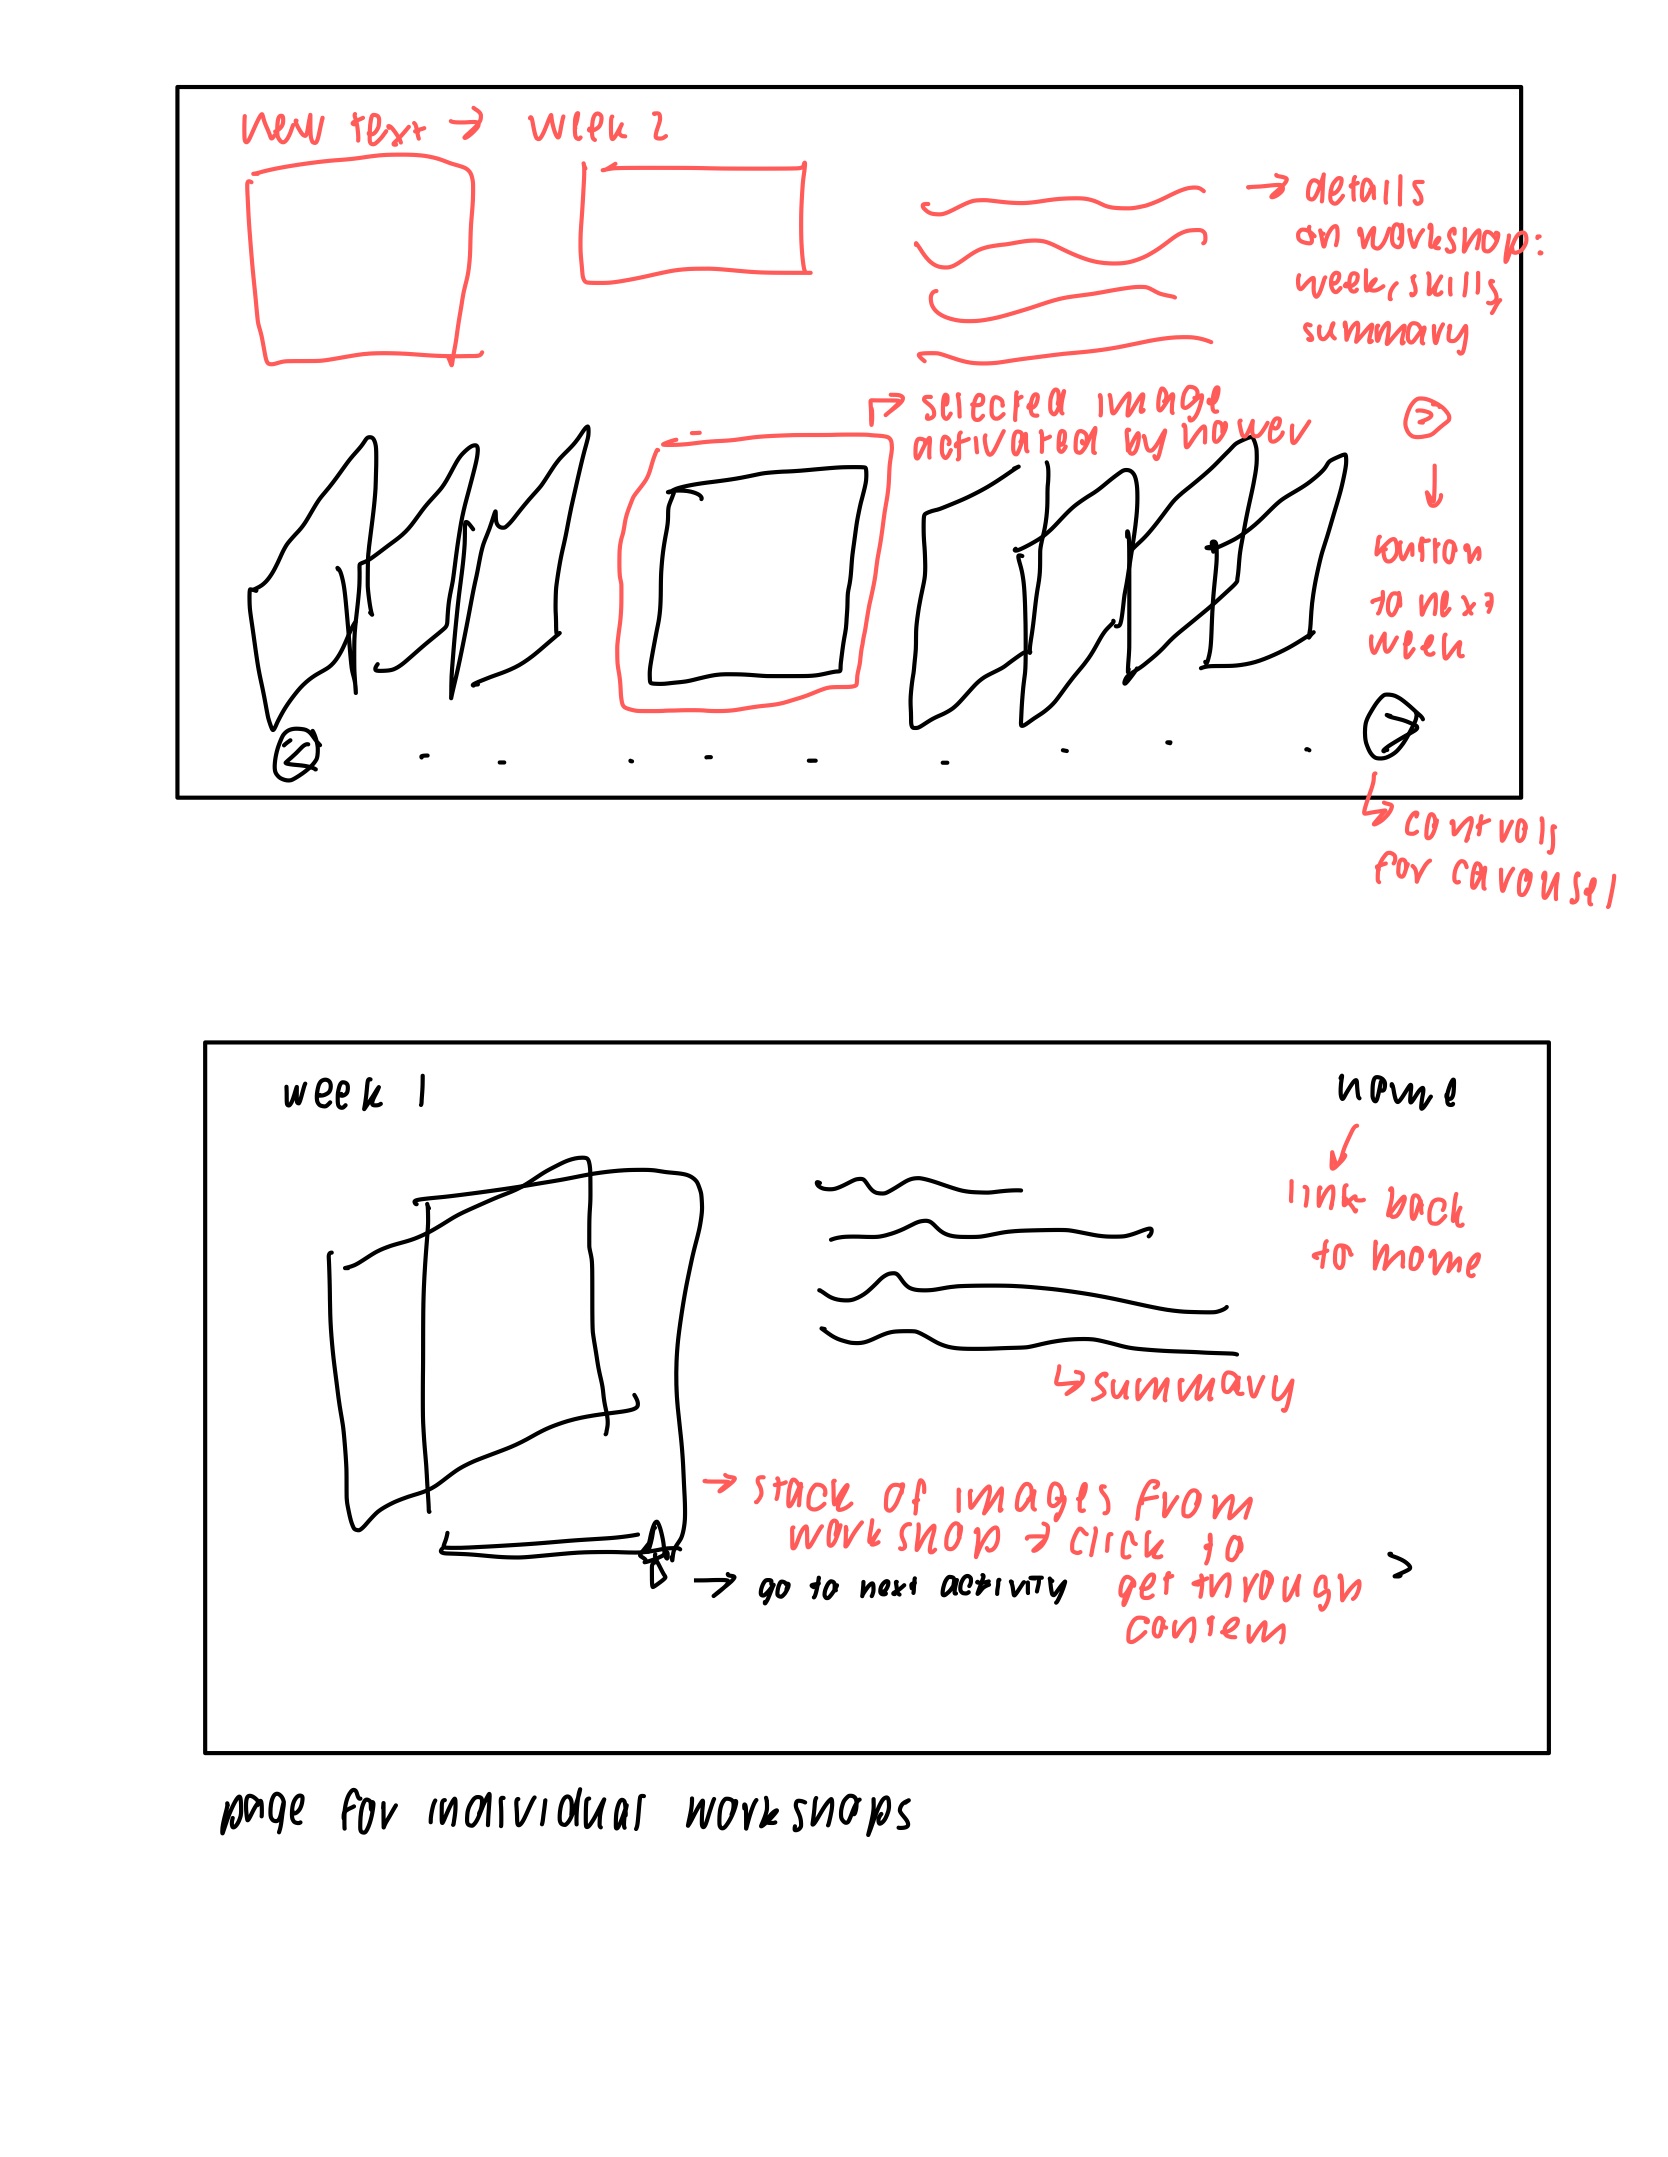 new text → week 2
→ details
on workshop:
week, skills,
summary
selected image
activated by hover
↓
button
to next
week
↳ controls
for carousel
week 1
home
link back
to home
↳ summary
→ stack of images from
workshop → click to
get through
→ go to next activity
page for individual workshops